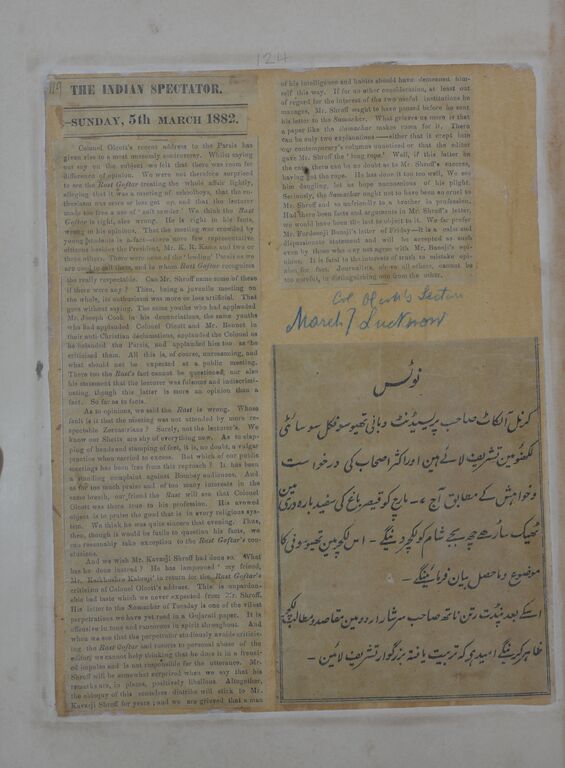 124
119
THE INDIAN SPECTATOR.
SUNDAY, 5th MARCH 1882.
Colonel Olcott's recent address to the Parsis has
given rise to a most unseemly controversy. Whilst saying
our say on the subject, we felt that there was room for
difference of opinion. We were not therefore surprised
to see the Rast Goftar treating the whole affair lightly,
alleging that it was a meeting of schoolboys, that the en-
thusiasm was more or less got up, and that the lecturer
made too free a use of "soft sawder." We think the Rast
Goftar is right, also wrong. He is right in his facts,
wrong in his opinions. That the meeting was crowded by
young students is a fact—there were few representative
citizens besides the President, Mr. K. R. Kama and two or
three others. There were none of the "leading" Parsis as we
are used to call them, and in whom Rast Goftar recognizes
the really respectable. Can Mr. Shroff name some of these
if there were any? Then, being a juvenile meeting on
the whole, its enthusiasm was more or less artificial. That
goes without saying. The same youths who had applauded
Mr. Joseph Cook in his denunciations, the same youths
who had applauded Colonel Olcott and Mr. Bennet in
their anti-Christian declamations, applauded the Colonel as
he defended the Parsis, and applauded him too as he
criticised them. All this is, of course, unreasoning, and
what should not be expected at a public meeting.
There too the Rast's fact cannot be questioned; nor also
his statement that the lecturer was fulsome and indiscrimi-
nating, though this latter is more an opinion than a
fact. So far as to facts.
As to opinions, we said the Rast is wrong. Whose
fault is it that the meeting was not attended by more re-
spectable Zoroastrians? Surely, not the lecturer's. We
know our Shetts are shy of everything new. As to clap-
ping of hands and stamping of feet, it is, no doubt, a vulgar
practice when carried to excess. But which of our public
meetings has been free from this reproach? It has been
a standing complaint against Bombay audiences. And
as for too much praise and of too many interests in the
same breath, our friend the Rast will see that Colonel
Olcott was there true to his profession. His avowed
object is to praise the good that is in every religious sys-
tem. We think he was quite sincere that evening. Thus,
then, though it would be futile to question his facts, we
can reasonably take exception to the Rast Goftar's con-
clusions.
And we wish Mr. Kavasji Shroff had done so. What
has he done instead? He has lampooned "my friend,
Mr. Kaikhushro Kabraji" in return for the Rast Goftar's
criticism of Colonel Olcott's address. This is unpardon-
able bad taste which we never expected from Mr. Shroff.
His letter to the Samachar of Tuesday is one of the vilest
perpetrations we have yet read in a Gujarati paper. It is
offensive in tone and rancorous in spirit throughout. And
when we see that the perpetrator studiously avoids criticis-
ing the Rast Goftar and resorts to personal abuse of the
editor, we cannot help thinking that he does it in a frenzi-
of impulse and is not responsible for the utterance. Mr.
Shroff will be somewhat surprised when we say that his
remarks are, in places, positively libellous. Altogether,
the obloquy of this senseless diatribe will stick to Mr.
Kavasji Shroff for years; and we are grieved that a man
of his intelligence and habits should have demeaned him-
self this way. If for no other consideration, at least out
of regard for the interest of the two useful institutions he
manages, Mr. Shroff ought to have paused before he sent
his letter to the Samachar. What grieves us more is that
a paper like the Samachar makes room for it. There
can be only two explanations—either that it crept into
our contemporary's columns unnoticed or that the editor
gave Mr. Shroff the "long rope." Well, if this latter be
the case, there can be no doubt as to Mr. Shroff's success,
having got the rope. He has done it too too well. We see
him dangling, let us hope unconscious of his plight.
Seriously, the Samachar ought not to have been so cruel to
Mr. Shroff and so unfriendly to a brother in profession.
Had there been facts and arguments in Mr. Shroff's letter,
we would have been the last to object to it. We far prefer
Mr. Fardoonji Banaji's letter of Friday—it is a calm and
dispassionate statement and will be accepted as such
even by those who may not agree with Mr. Banaji's opi-
nions. It is fatal to the interests of truth to mistake opi-
nion for fact. Journalists, above all others, cannot be
too careful, in distinguishing one from the other.
Col Olcott's Lecture
March 7 Lucknow
نوٹس
کرنل آلکاٹ صاحب پریسیڈنٹ وبانی تھیوسوفکل سوسائٹی
لکھنؤ مین تشریف لائے ہین اور اکثر اصحاب کی درخواست
وخواہش کے مطابق آج ۷۔ مارچ کو قیصر باغ کی سفید بارہ دری مین
ٹھیک ساڑھے چھ بجے شام کو لکچر دینگے ۔ اس لکچر مین تھیوسوفی کا
موضوع وماحصل بیان فرمائینگے ۔
اسکے بعد پنڈت رتن ناتھ صاحب سرشار اردو مین مقاصد ومطالب لکچر
ظاہر کرینگے امید ہی کہ تربیت یافتہ بزرگوار تشریف لائین ۔